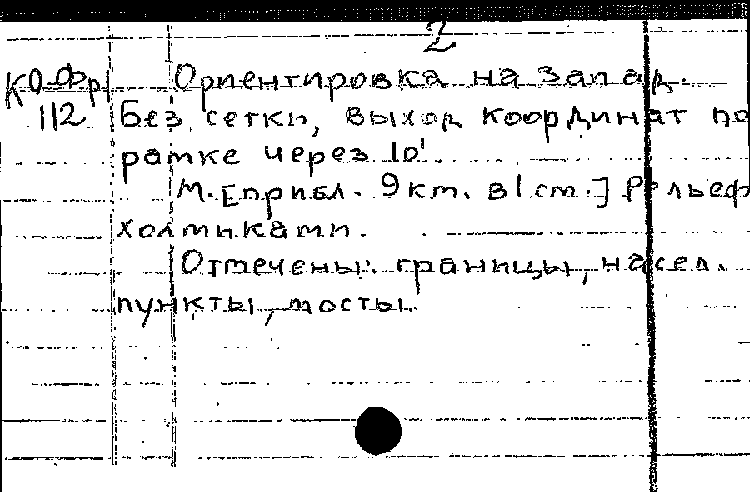 2
КО-Фр Ориентировка на запад.
112 Без сетки, выход координат по
рамке через 10'
М. [прибл. 9 км. в 1 см.] Рельеф
холмиками.
Отмечены: границы, насел.
пункты, мосты.